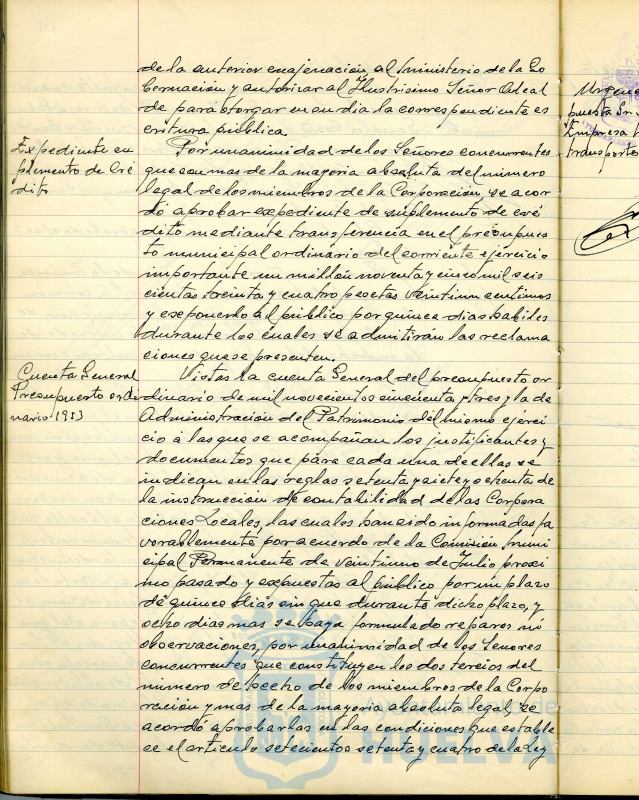 de la anterior enajenación, al Ministerio de la Go
bernación y autorizar al Ilustrisimo Señor Alcal
de para otorgar en su dia la correspondiente es
critura pública.
Expediente su
plemento de Cré
dito
Por unanimidad de los Señores concurrentes
que son mas de la mayoria absoluta del número
legal de los miembros de la Corporación, se acor
dó aprobar expediente de suplemento de cré
dito mediante transferencia en el presupues
to municipal ordinario del corriente ejercicio
importante un millón noventa y cinco mil seis
cientas treinta y cuatro pesetas veintiun centimos
y exponerlo al público por quince dias habiles
durante los cuales se admitirán las reclama
ciones que se presenten.
Cuenta General
Presupuesto ordi
nario 1953
Vistas la cuenta General del presupuesto or
dinario de mil novecientos cincuenta y tres y la de
Administración del Patrimonio del mismo ejerci
cio a las que se acompañan los justificantes y
documentos que para cada una de ellas se
indican en las reglas setenta y siete y ochenta de
la instrucción de contabilidad de las Corpora
ciones Locales, las cuales han sido informadas fa
vorablemente por acuerdo de la Comisión Muni
cipal Permanente de veintiuno de Julio proxi
mo pasado y expuestas al público por un plazo
de quince dias sin que durante dicho plazo, y
ocho dias mas se haya formulado reparos ni
observaciones, por unanimidad de los Señores
concurrentes que constituyen los dos tercios del
número de hecho de los miembros de la Corpo
ración y mas de la mayoria absoluta legal, se
acordó aprobarlas en las condiciones que estable
ce el articulo setecientos setenta y cuatro de la Ley
Urgenc
puesta Sr.
Empresa
transporte
HUELVA